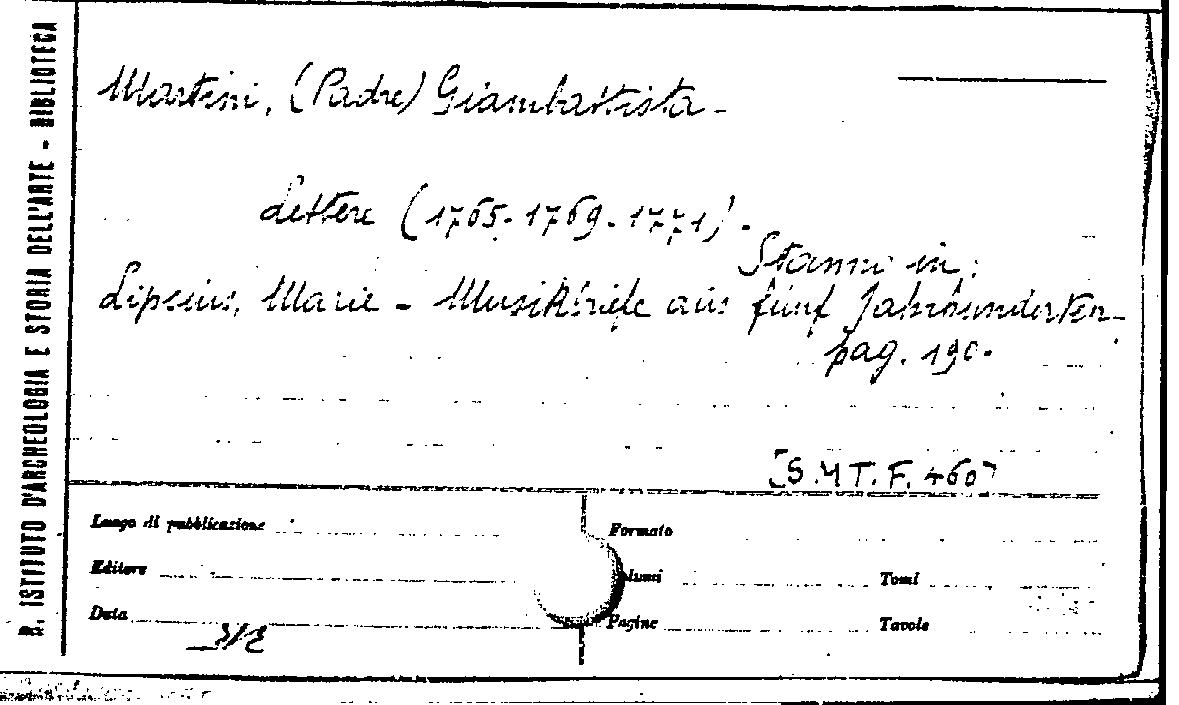 R. ISTITUTO D'ARCHEOLOGIA E STORIA DELL'ARTE - BIBLIOTECA
Martini, (Padre) Giambattista -
Lettere (1765-1769-1771) -
Stanno in:
Lipsius, Marie - Musikbriefe aus fünf Jahrhunderten -
pag. 190.
[S.M.T.F. 460]
Luogo di pubblicazione
Formato
Editore
Tomi
Data
Pagine
Tavole